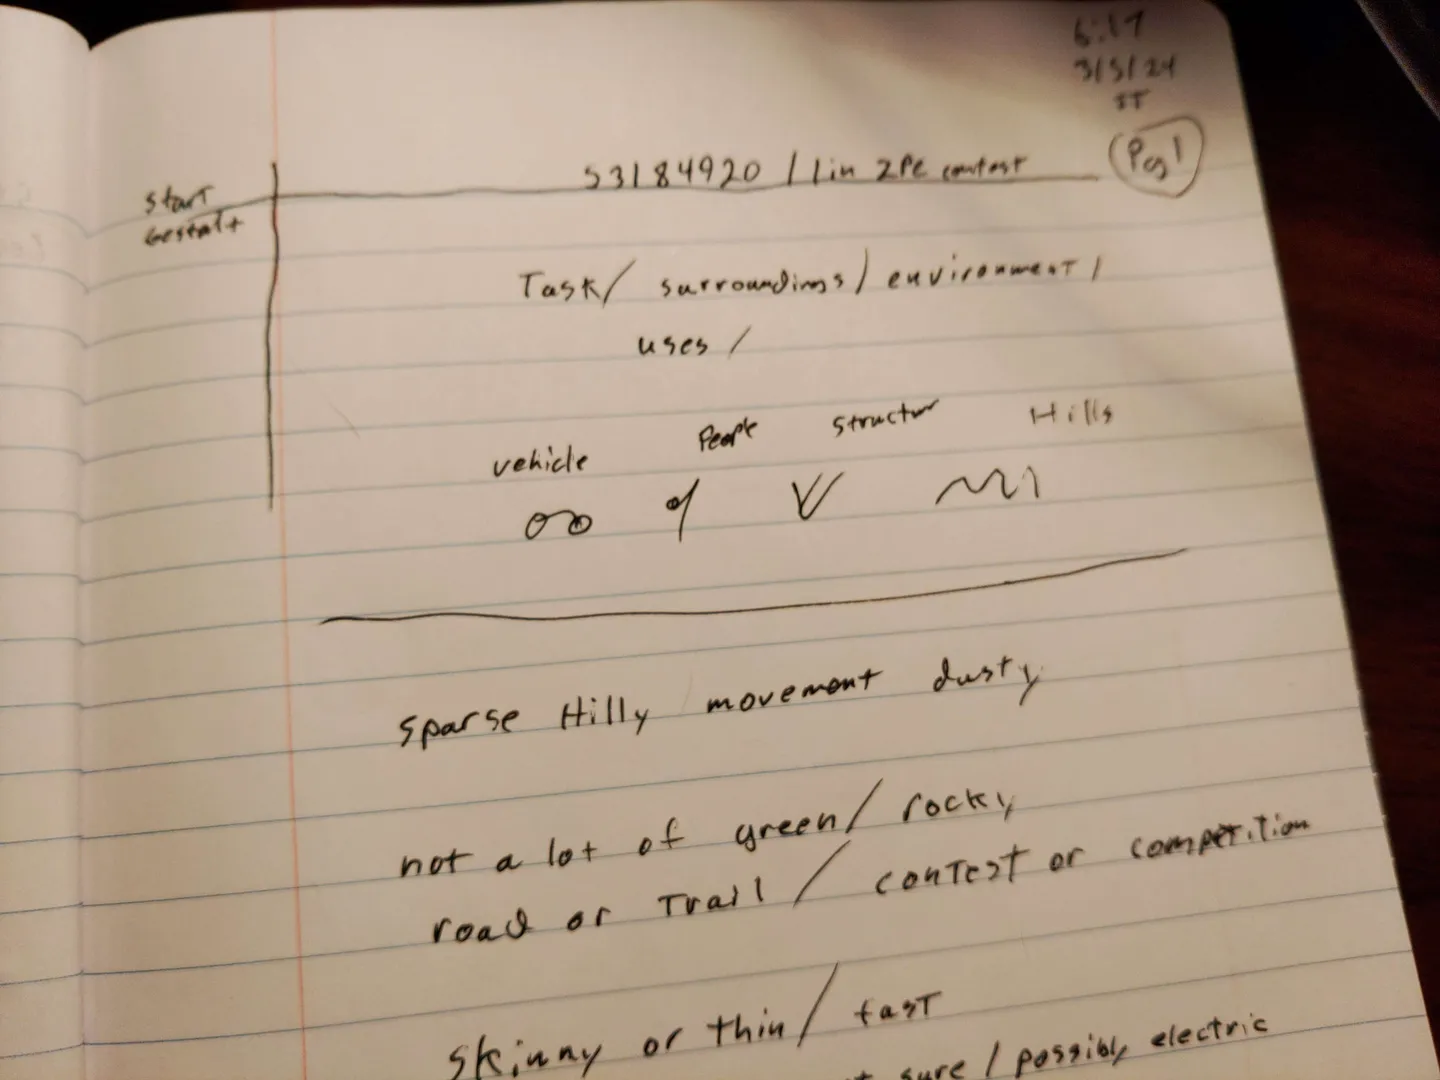 6:17
3/5/24
Pg 1
53184920 / 1 in 2PC contest
Start
Gestalt
Task/ surroundings/ environment/
uses/
vehicle People structur Hills
sparse Hilly movement dusty
not a lot of green/ rocky
road or Trail/ contest or competition
skinny or thin/ fast
sure / possibly electric